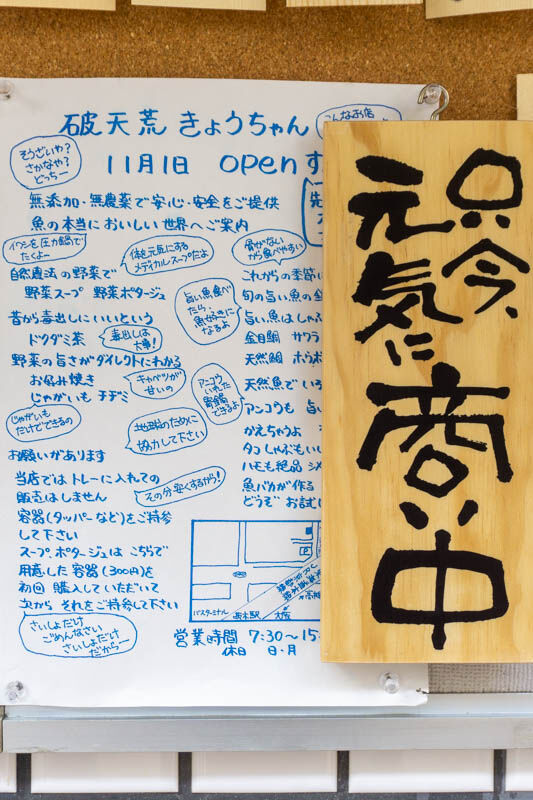 破天荒 きょうちゃん
こんなお店
そうざいや?
さかなや?
どっちー
11月1日 openす
無添加・無農薬で安心・安全をご提供
魚の本当においしい世界へご案内
イワシを圧力鍋で
たくよー
体を元気にする
メディカルスープだよ
骨がない
から食べやすい
自然農法の野菜で
野菜スープ 野菜ポタージュ
昔から毒出しにいいという
ドクダミ茶
毒出しは
大事!
野菜の旨さがダイレクトにわかる
お好み焼き
キャベツが
甘いの
じゃがいも チヂミ
じゃがいも
だけでできるの
地球のために
協力して下さい
お願いがあります
当店では トレーに入れての
販売はしません
その分安くするから!
容器(タッパーなど)をご持参
して下さい
スープ、ポタージュは こちらで
用意した容器(300円)を
初回 購入していただいて
次から それをご持参して下さい
さいしょだけ
ごめんなさい
さいしょだけ
だからー
これからの季節
旬の旨い魚の
旨い魚食べ
たら、
魚好きに
なるよ
旨い魚はしゃ
金目鯛 サワラ
天然鯛 ホウボ
天然魚で いろ
アンコウ
いれた
寄鍋
できるよ
アンコウも 旨い
かえちゃうよ
タコしゃぶもい
ハモも絶品 シメ
魚バカが作る
どうぞ お試し
P
バスターミナル
茨木駅
大阪
営業時間 7:30〜15:
休日 日・月
只今、
元気に
商い中